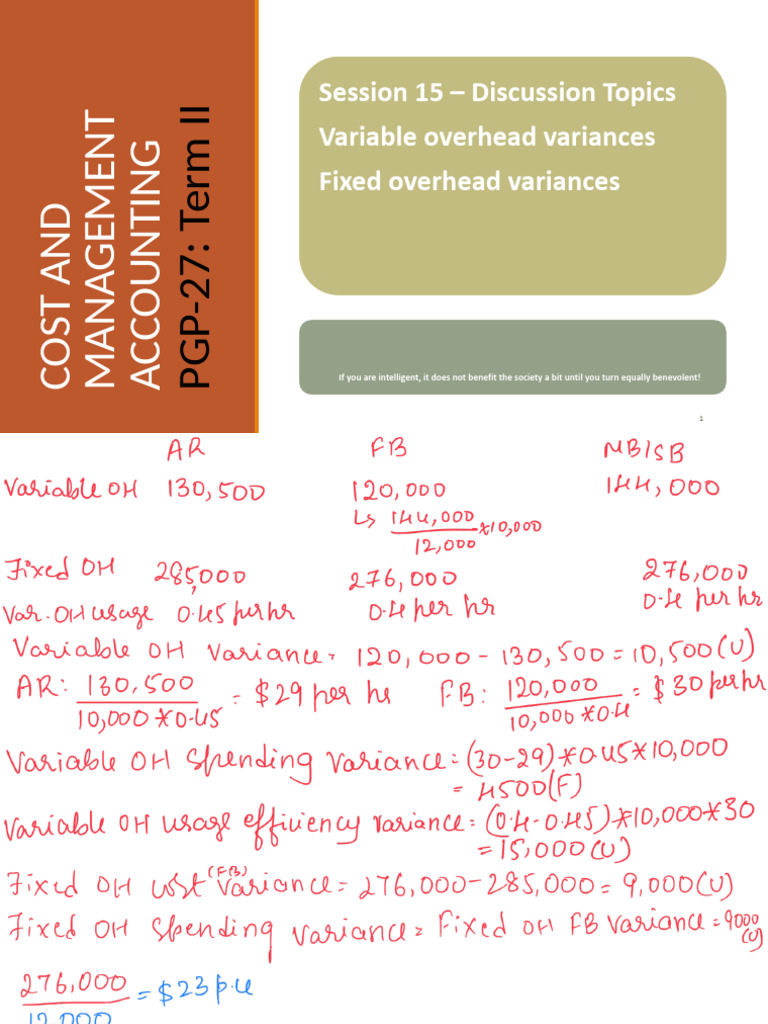 COST AND
MANAGEMENT
ACCOUNTING
PGP-27: Term II
Session 15 – Discussion Topics
Variable overhead variances
Fixed overhead variances
If you are intelligent, it does not benefit the society a bit until you turn equally benevolent!
1
AR FB MB/SB
Variable OH 130,500 120,000 144,000
↳ 144,000 *10,000
12,000
Fixed OH 285,000 276,000 276,000
Var. OH usage 0.45 per hr 0.4 per hr 0.4 per hr
Variable OH Variance = 120,000 - 130,500 = 10,500 (U)
AR: 130,500 = $29 per hr FB: 120,000 = $30 per hr
10,000*0.45 10,000*0.4
Variable OH spending variance = (30-29)*0.45*10,000
= 4500 (F)
Variable OH usage efficiency variance = (0.4-0.45)*10,000*30
= 15,000 (U)
Fixed OH cost (FB) variance = 276,000 - 285,000 = 9,000 (U)
Fixed OH spending variance = Fixed OH FB variance = 9000 (U)
276,000 = $23 p.u
12,000